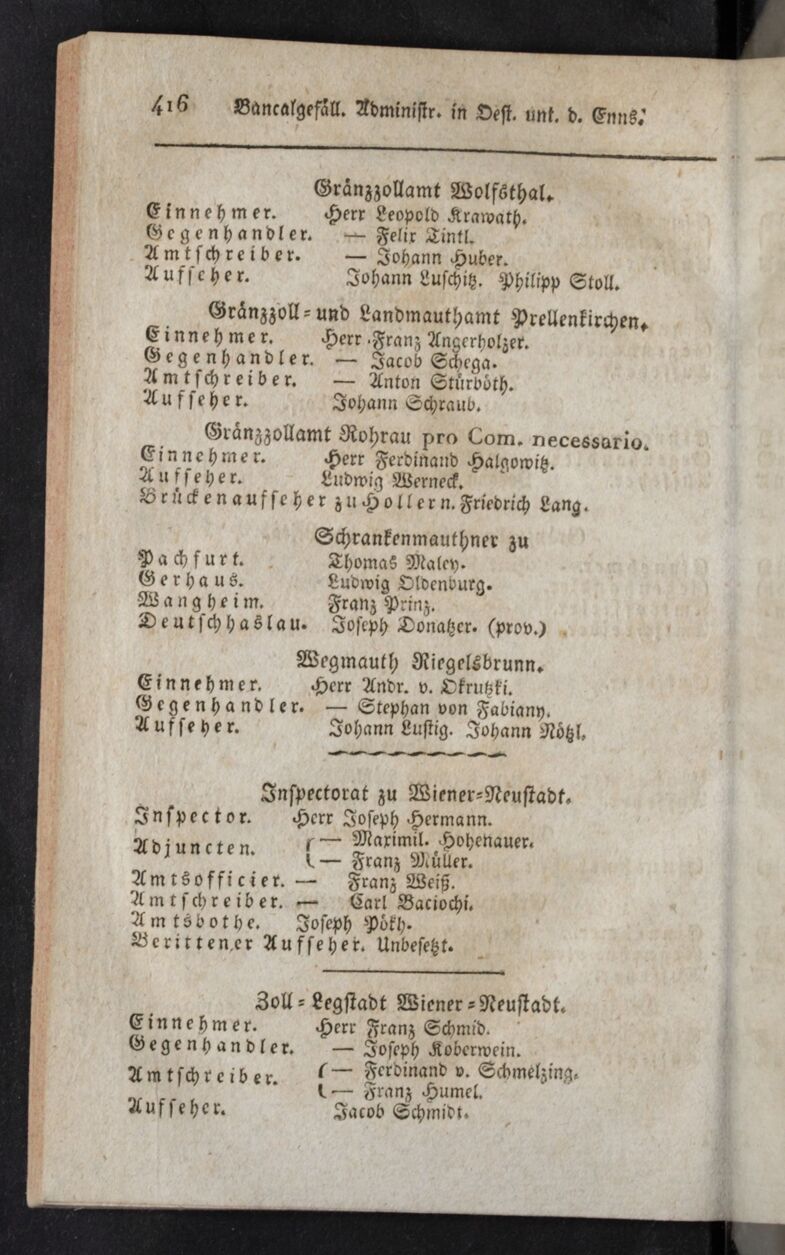 416 Bancalgefäll. Administr. in Oest. unt. d. Enns.
Gränzzollamt Wolfsthal.
Einnehmer. Herr Leopold Krawath.
Gegenhandler. — Felix Tintl.
Amtschreiber. — Johann Huber.
Aufseher. Johann Luschitz. Philipp Stoll.
Gränzzoll- und Landmauthamt Prellenkirchen.
Einnehmer. Herr Franz Angerholzer.
Gegenhandler. — Jacob Schega.
Amtschreiber. — Anton Stürböth.
Aufseher. Johann Schraub.
Gränzzollamt Rohrau pro Com. necessario.
Einnehmer. Herr Ferdinand Halgowitz.
Aufseher. Ludwig Werneck.
Brückenaufseher zu Hollern. Friedrich Lang.
Schrankenmauthner zu
Pachfurt. Thomas Maley.
Gerhaus. Ludwig Oldenburg.
Wangheim. Franz Prinz.
Deutschhaslau. Joseph Donatzer. (prov.)
Wegmauth Riegelsbrunn.
Einnehmer. Herr Andr. v. Okrutzki.
Gegenhandler. — Stephan von Fabiany.
Aufseher. Johann Lustig. Johann Nötzl.
Inspectorat zu Wiener-Neustadt.
Inspector. Herr Joseph Hermann.
Adjuncten. — Maximil. Hohenauer.
— Franz Müller.
Amtsofficier. — Franz Weiß.
Amtschreiber. — Carl Baciochi.
Amtsbothe. Joseph Pökh.
Berittener Aufseher. Unbesetzt.
Zoll-Legstadt Wiener-Neustadt.
Einnehmer. Herr Franz Schmid.
Gegenhandler. — Joseph Koberwein.
Amtschreiber. — Ferdinand v. Schmelzing.
— Franz Humel.
Aufseher. Jacob Schmidt.